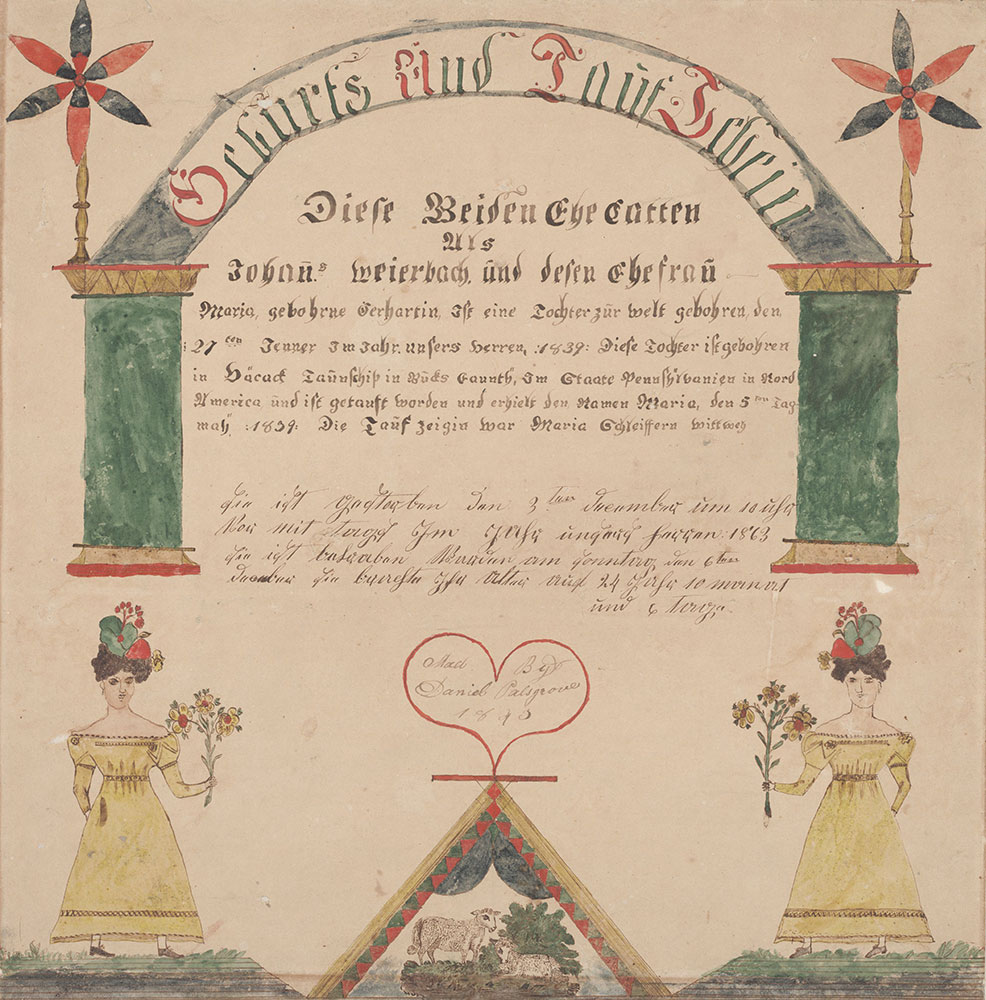 Geburts Und Tauf Schein
Diese Beiden Ehe Catten
Als
Johan̄s Weierbach, und desen Ehefrau
Maria, gebohrne Gerhartin, Ist eine Tochter zūr welt gebohren, den
:27ten Jenner Im Jahr unsers Herren, :1839: Diese Tochter ist gebohren
in Häcack Taūnschip in Būcks Caunty, Im Staate Pennsylvanien in Nord
America ūnd ist getauft worden und erhielt den Namen Maria, den 5ten Tag
may :1839: Die Tauf zeigin war Maria Schleiffern wittweh
Sie ist Gestorben den 3ten December um 10 uhr
Vor mit tags Im Jahr unsers Herren 1863
Sie ist begraben Warden am Sonntag, den 6ten
December Sie brachte Ihr Alter auf 24 Jahr 10 monat
und 6 Tage.
Mad By
Daniel Palsgrove